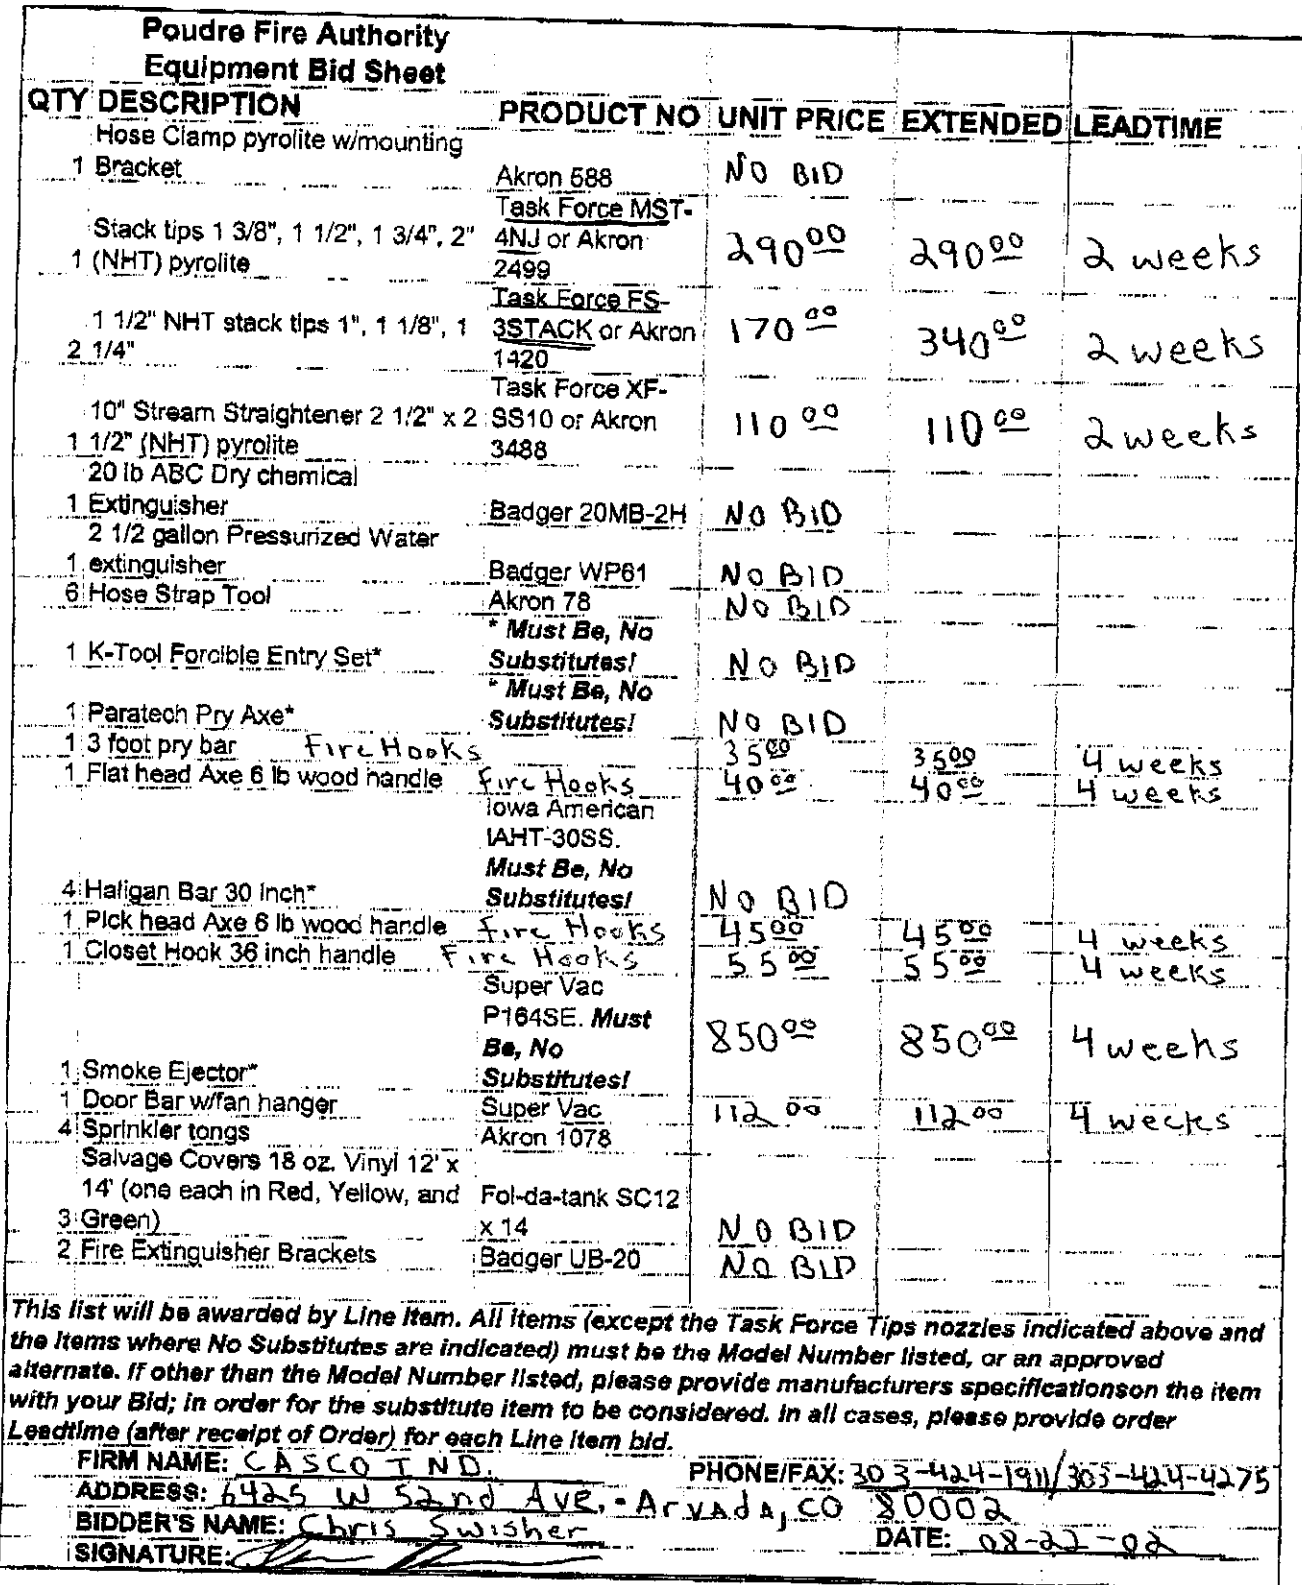 Poudre Fire Authority
Equipment Bid Sheet
QTY DESCRIPTION PRODUCT NO UNIT PRICE EXTENDED LEADTIME
Hose Clamp pyrolite w/mounting
1 Bracket Akron 588 NO BID
Task Force MST-
Stack tips 1 3/8", 1 1/2", 1 3/4", 2" 4NJ or Akron 290 00 290 00 2 weeks
1 (NHT) pyrolite 2499
Task Force FS-
1 1/2" NHT stack tips 1", 1 1/8", 1 3STACK or Akron 170 00 340 00 2 weeks
2 1/4" 1420
Task Force XF-
10" Stream Straightener 2 1/2" x 2 SS10 or Akron 110 00 110 00 2 weeks
1 1/2" (NHT) pyrolite 3488
20 lb ABC Dry chemical
1 Extinguisher Badger 20MB-2H NO BID
2 1/2 gallon Pressurized Water
1 extinguisher Badger WP61 NO BID
6 Hose Strap Tool Akron 78 NO BID
* Must Be, No
1 K-Tool Forcible Entry Set* Substitutes! NO BID
* Must Be, No
1 Paratech Pry Axe* Substitutes! NO BID
1 3 foot pry bar Fire Hooks 35 00 35 00 4 weeks
1 Flat head Axe 6 lb wood handle Fire Hooks 40 00 40 00 4 weeks
Iowa American
IAHT-30SS.
Must Be, No
4 Haligan Bar 30 Inch* Substitutes! NO BID
1 Pick head Axe 6 lb wood handle Fire Hooks 45 00 45 00 4 weeks
1 Closet Hook 36 inch handle Fire Hooks 55 00 55 00 4 weeks
Super Vac
P164SE. Must
Be, No 850 00 850 00 4 weeks
1 Smoke Ejector* Substitutes!
1 Door Bar w/fan hanger Super Vac 112 00 112 00 4 weeks
4 Sprinkler tongs Akron 1078
Salvage Covers 18 oz. Vinyl 12' x
14' (one each in Red, Yellow, and Fol-da-tank SC12
3 Green) x 14 NO BID
2 Fire Extinguisher Brackets Badger UB-20 NO BID
This list will be awarded by Line Item. All Items (except the Task Force Tips nozzles indicated above and
the Items where No Substitutes are indicated) must be the Model Number listed, or an approved
alternate. If other than the Model Number listed, please provide manufacturers specificationson the item
with your Bid; in order for the substitute item to be considered. In all cases, please provide order
Leadtime (after receipt of Order) for each Line Item bid.
FIRM NAME: CASCO IND. PHONE/FAX: 303-424-1911/303-424-4275
ADDRESS: 6425 W 52nd Ave. - Arvada, CO 80002
BIDDER'S NAME: Chris Swisher DATE: 08-22-02
SIGNATURE: